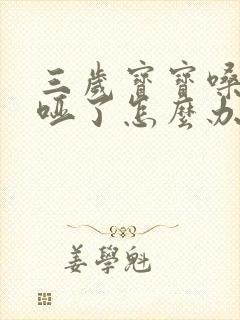 三歲寶寶嗓
啞了怎麼办
姜學魁